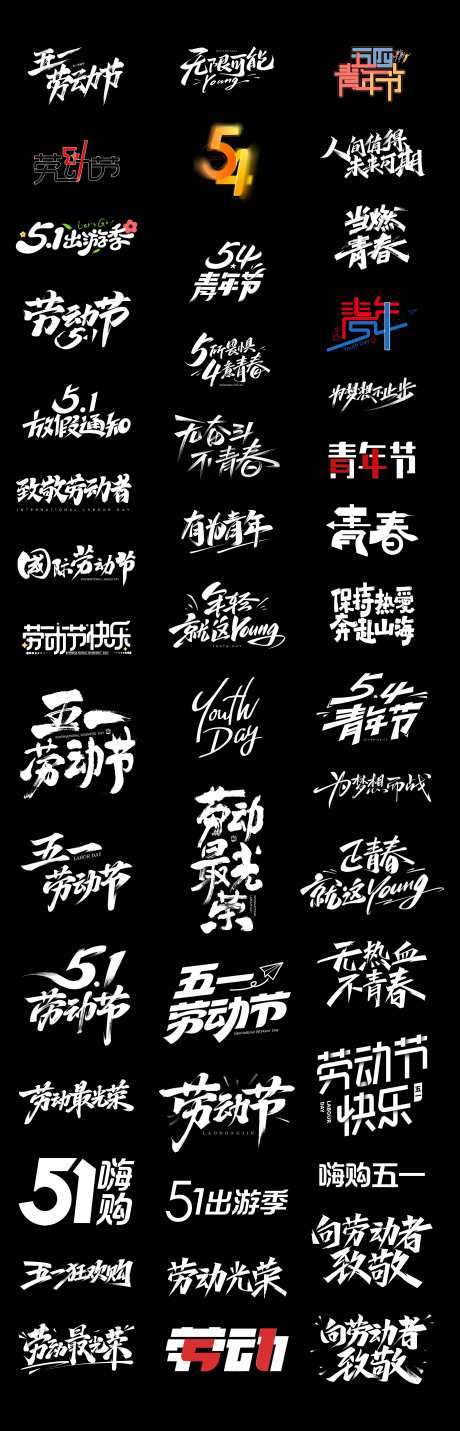 五一
劳动节
劳动节
51
Let's Go!
5.1出游季
劳动节
5.1
5.1
放假通知
致敬劳动者
INTERNATIONAL LABOUR DAY
国际劳动节
劳动节快乐
五一
劳动节
五一
LABOR DAY
劳动节
5.1
劳动节
劳动最光荣
51
嗨购
五一狂欢购
劳动最光荣
无限可能
Young
54
5.4
青年节
5所畏惧
4意青春
无奋斗
不青春
有为青年
年轻
就这Young
YOUTH DAY
Youth
Day
劳动
最光
荣
五一
劳动节
International Workers' Day
劳动节
LAODONGJIE
51出游季
劳动光荣
劳动
五四
青年节
人间值得
未来可期
当燃
青春
青年
54
Youth Day
为梦想不止步
青年节
青春
保持热爱
奔赴山海
5.4
青年节
为梦想而战
正青春
就这Young
无热血
不青春
劳动节
快乐
五一
LABOUR
DAY
嗨购五一
向劳动者
致敬
向劳动者
致敬